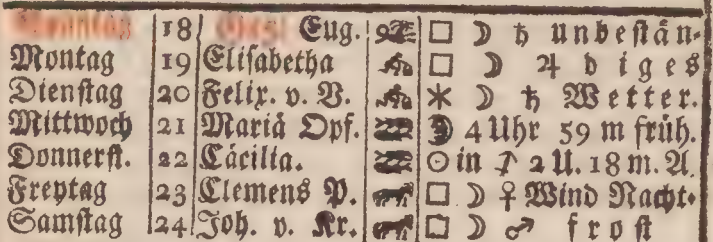 18 Eug. □ ☽ ♄ unbeſtän-
Montag 19 Eliſabetha □ ☽ ♃ diges
Dienſtag 20 Felix. v. V. ⚹ ☽ ♄ Wetter.
Mittwoch 21 Mariä Opf. 4 Uhr 59 m früh.
Donnerſt. 22 Cäcilia. ☉ in ♐ 2 U. 18 m. A.
Freytag 23 Clemens P. □ ☽ ♀ Wind Nacht-
Samſtag 24 Joh. v. Kr. □ ☽ ♂ froſt